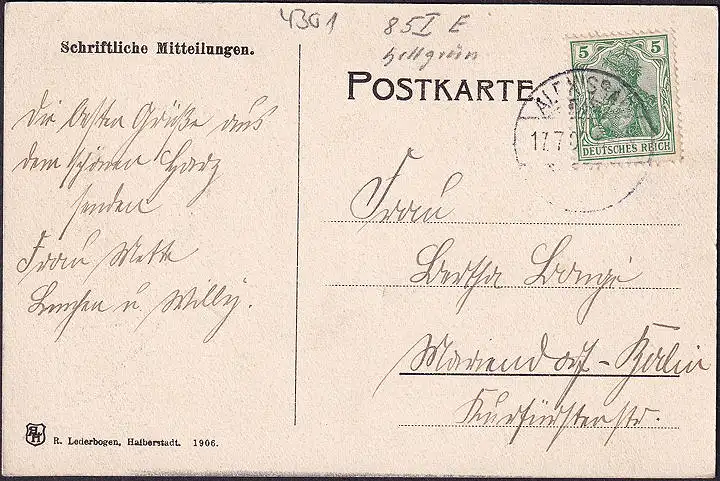 4301
85 I E
hellgrün
Schriftliche Mitteilungen.
POSTKARTE
5 5
DEUTSCHES REICH
17.7.0
Die besten Grüße aus
dem schönen Harz
senden
Frau Mette
u. Willy.
Frau
Bertha Lange
Mariendorf-Berlin
Kurfürstenstr.
R. Lederbogen, Halberstadt. 1906.